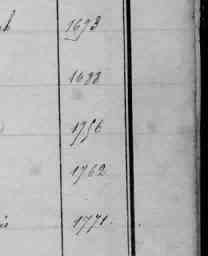 1693
1688
1756
1762
1771.